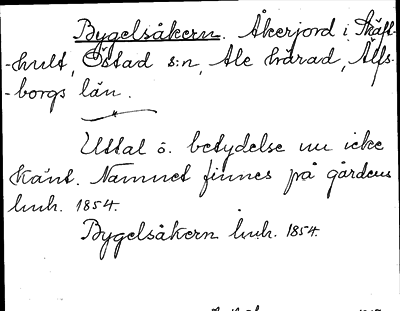 Bygelsåkern. Åkerjord i Skäfl-
-hult, Östad s:n, Ale härad, Älfs-
-borgs län.
Uttal o. betydelse nu icke
känt. Namnet finnes på gårdens
huh. 1854.
Bygelsåkern huh. 1854.